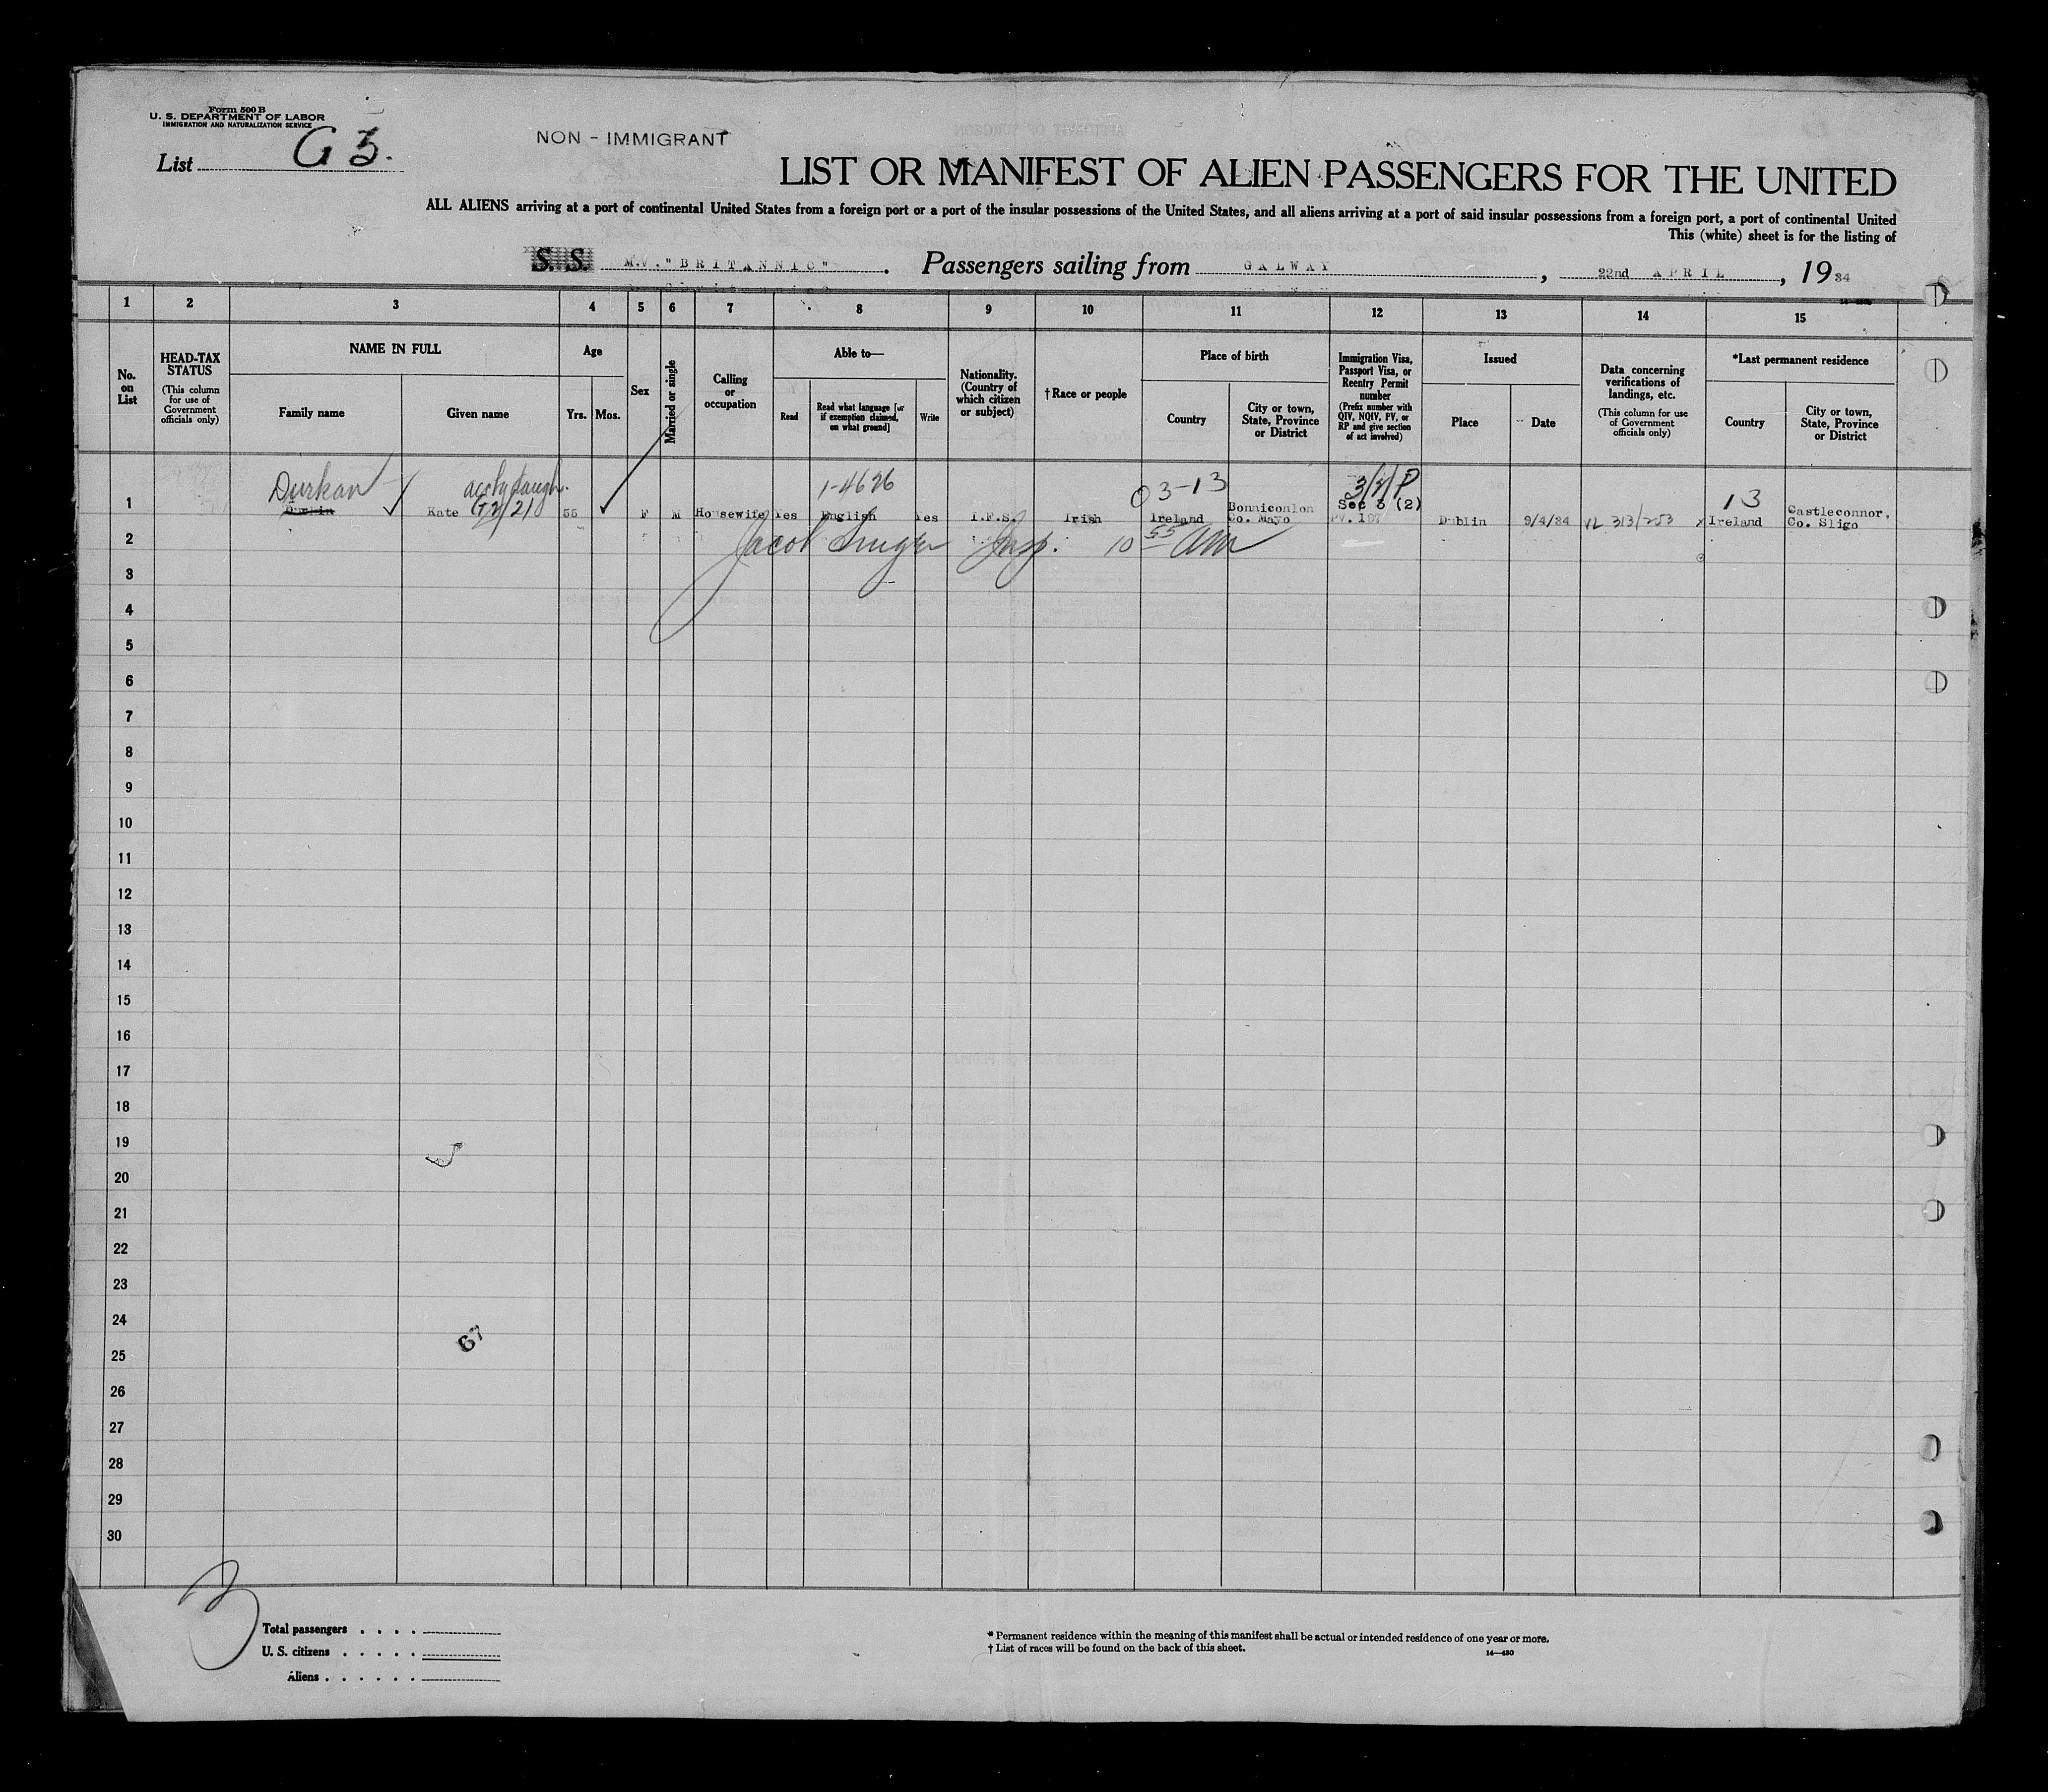 Form 500 B
U. S. DEPARTMENT OF LABOR
IMMIGRATION AND NATURALIZATION SERVICE
List G 3.
NON - IMMIGRANT
LIST OR MANIFEST OF ALIEN PASSENGERS FOR THE UNITED
ALL ALIENS arriving at a port of continental United States from a foreign port or a port of the insular possessions of the United States, and all aliens arriving at a port of said insular possessions from a foreign port, a port of continental United
This (white) sheet is for the listing of
S. S. M.V. "BRITANNIC". Passengers sailing from GALWAY, 22nd APRIL, 1934
1 2 3 4 5 6 7 8 9 10 11 12 13 14 15
No. on List
HEAD-TAX STATUS
(This column for use of Government officials only)
NAME IN FULL
Family name
Given name
Age
Yrs. Mos.
Sex
Married or single
Calling or occupation
Able to—
Read
Read what language [or if exemption claimed, on what ground]
Write
Nationality. (Country of which citizen or subject)
† Race or people
Place of birth
Country
City or town, State, Province or District
Immigration Visa, Passport Visa, or Reentry Permit number
(Prefix number with QIV, NQIV, PV, or RP and give section of act involved)
Issued
Place
Date
Data concerning verifications of landings, etc.
(This column for use of Government officials only)
*Last permanent residence
Country
City or town, State, Province or District
Durkan 1-4626 03-13 3/2/P 13
1 Durkin Kate G2/21 55 F M Housewife Yes English Yes I.F.S. Irish Ireland Bonniconlon Co. Mayo Sec 3 (2) PV. 107 Dublin 9/4/34 VL 313/253 x Ireland Castleconnor, Co. Sligo
2 Jacob Insp. 10 55 AM
3
4
5
6
7
8
9
10
11
12
13
14
15
16
17
18
19
20
21
22
23
24
25
26
27
28
29
30
67
3
Total passengers . . . .
U. S. citizens . . . . .
Aliens . . . . . .
* Permanent residence within the meaning of this manifest shall be actual or intended residence of one year or more.
† List of races will be found on the back of this sheet.
14—430